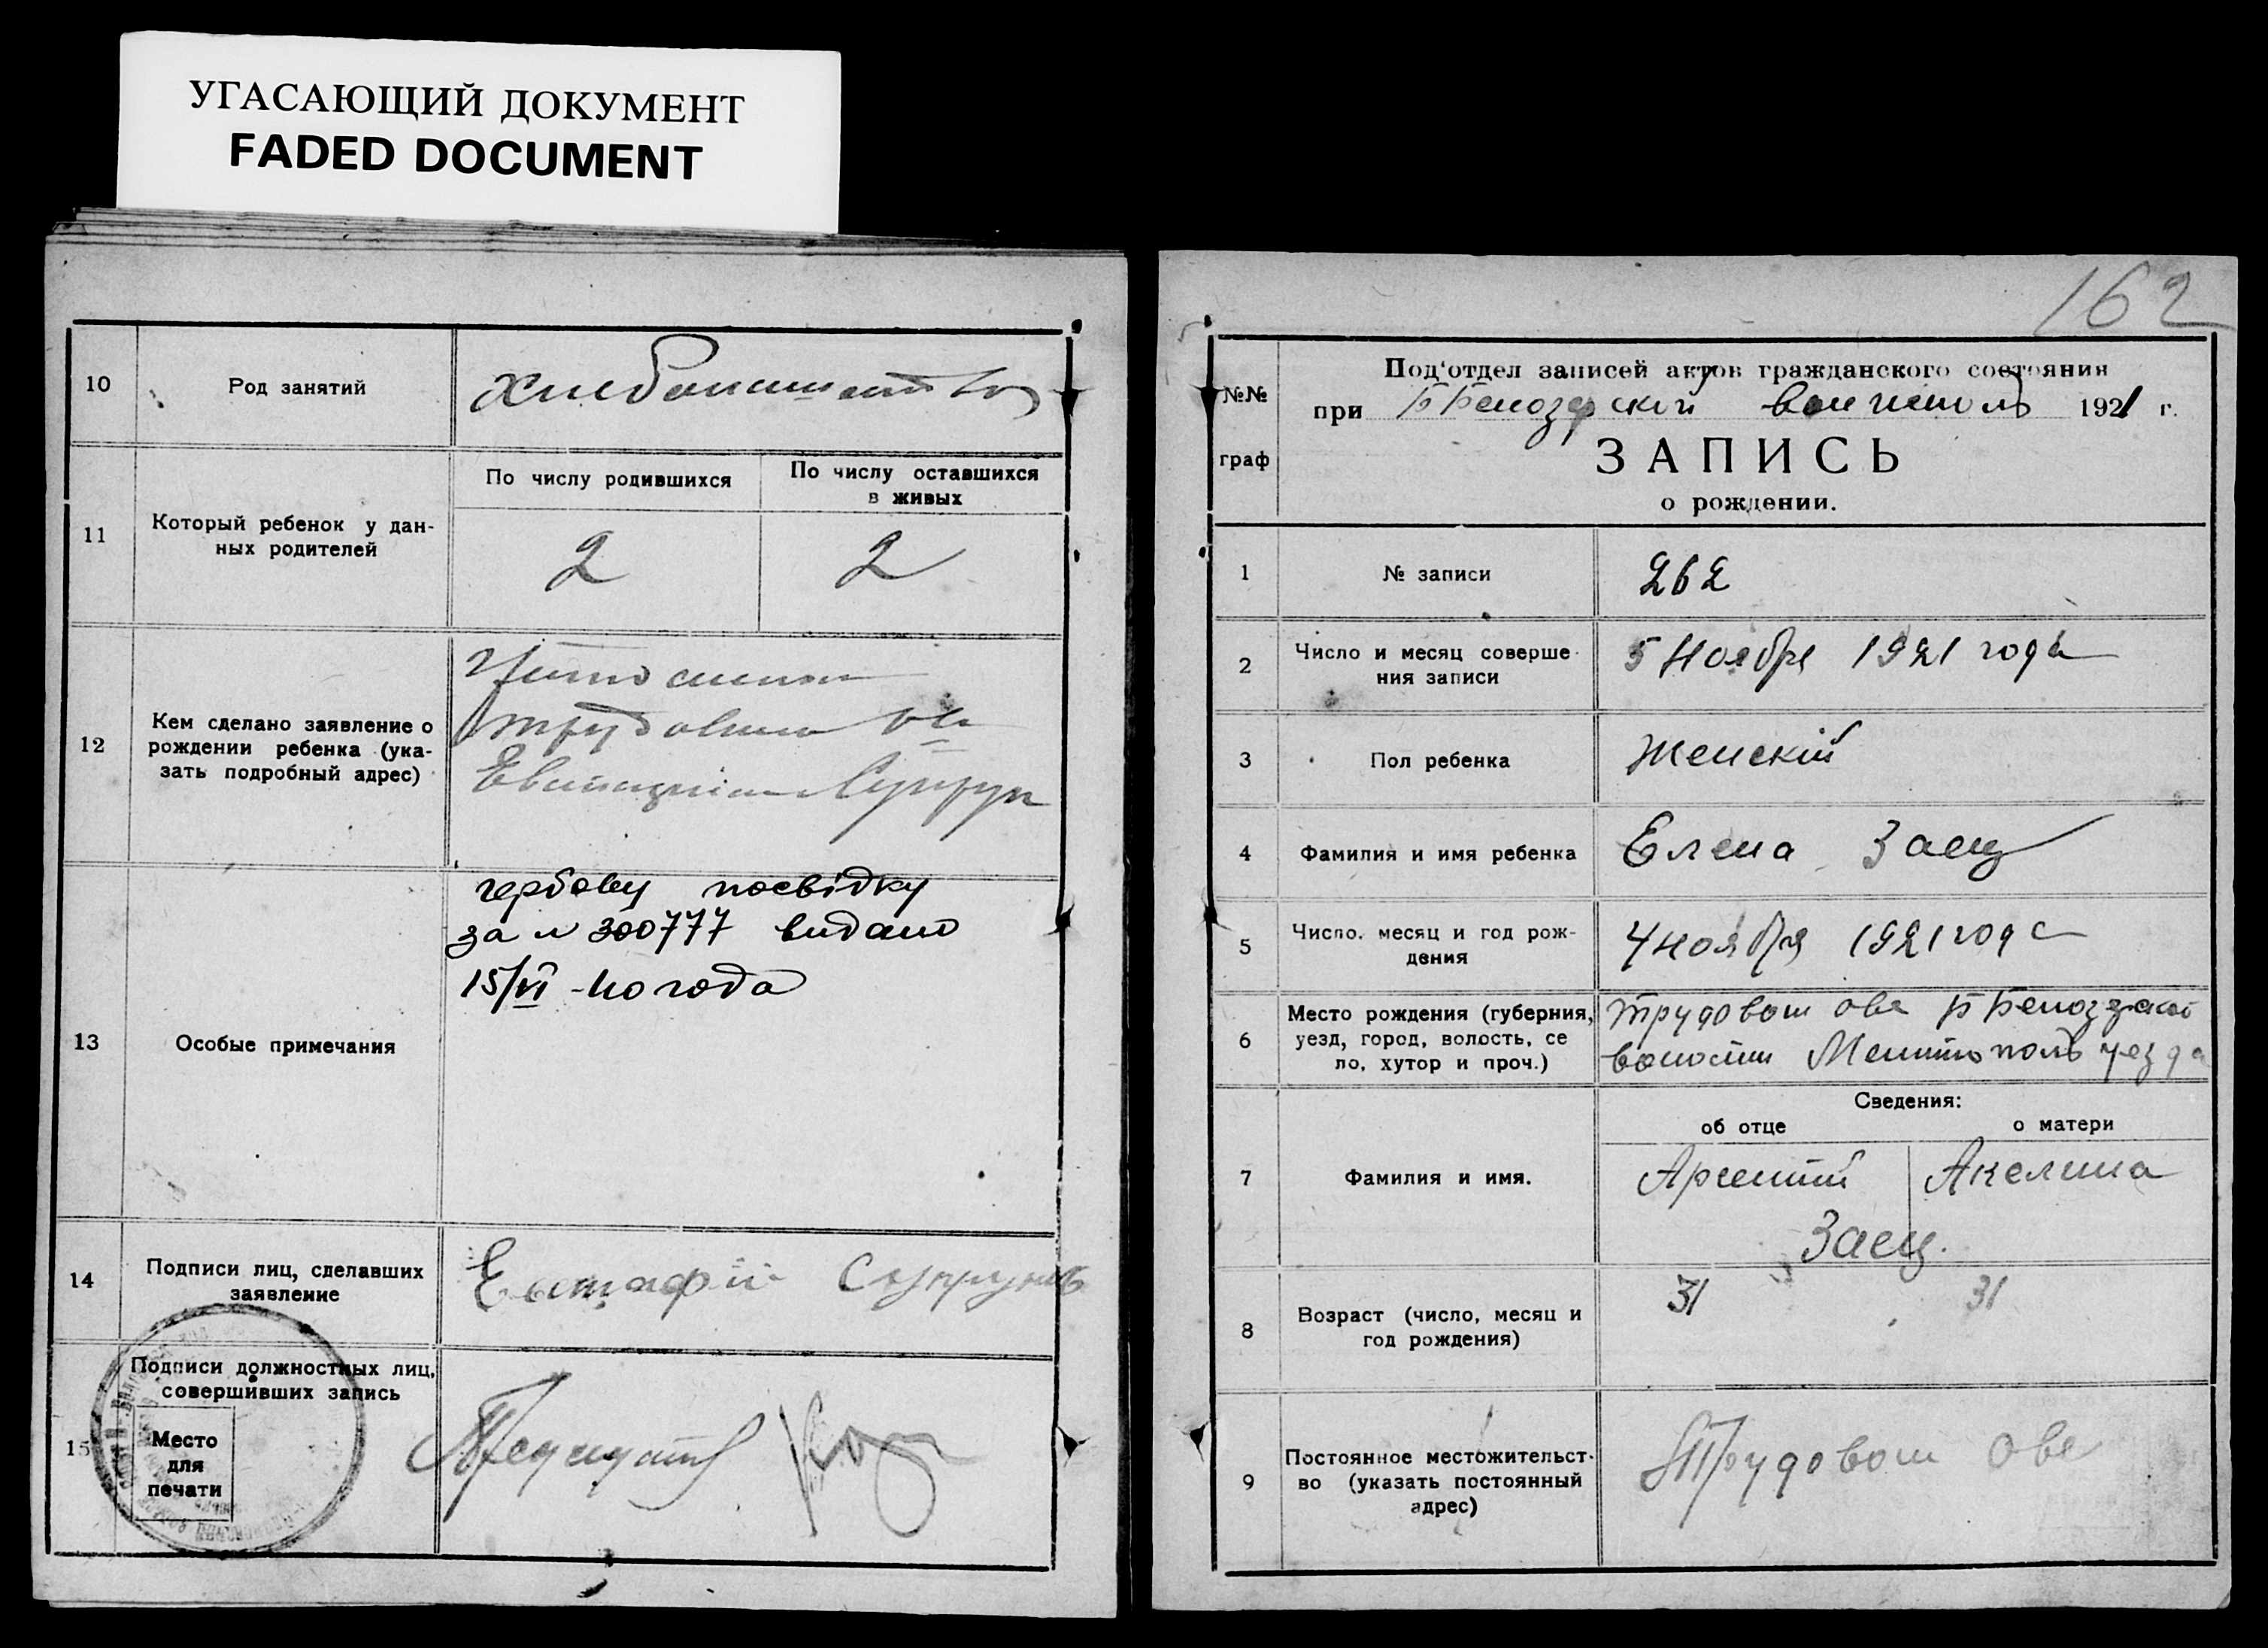 УГАСАЮЩИЙ ДОКУМЕНТ
FADED DOCUMENT
10
Род занятий
11
Который ребенок у дан-
ных родителей
По числу родившихся
По числу оставшихся
в живых
2
2
12
Кем сделано заявление о
рождении ребенка (ука-
зать подробный адрес)
Супрун
13
Особые примечания
гербову посвідку
за № 300777 видано
15/VI -40 года
14
Подписи лиц, сделавших
заявление
Евстафий Супрунъ
15
Подписи должностных лиц,
совершивших запись
Место
для
печати
162
№№
граф
Под‘отдел записей актов гражданского состояния
при Б Белозерской 1921 г.
ЗАПИСЬ
о рождении.
1
№ записи
262
2
Число и месяц соверше-
ния записи
5 Ноября 1921 года
3
Пол ребенка
Женскій
4
Фамилия и имя ребенка
Елена Заец
5
Число, месяц и год рож-
дения
4 ноября 1921 года
6
Место рождения (губерния,
уезд, город, волость, се
ло, хутор и проч.)
Трудовом ове Б Белозерской
волости Мелитополь уезда
Сведения:
об отце
о матери
7
Фамилия и имя.
Арсентий
Акелина
Заец.
8
Возраст (число, месяц и
год рождения)
31
31
9
Постоянное местожительст-
во (указать постоянный
адрес)
Трудовом Ове